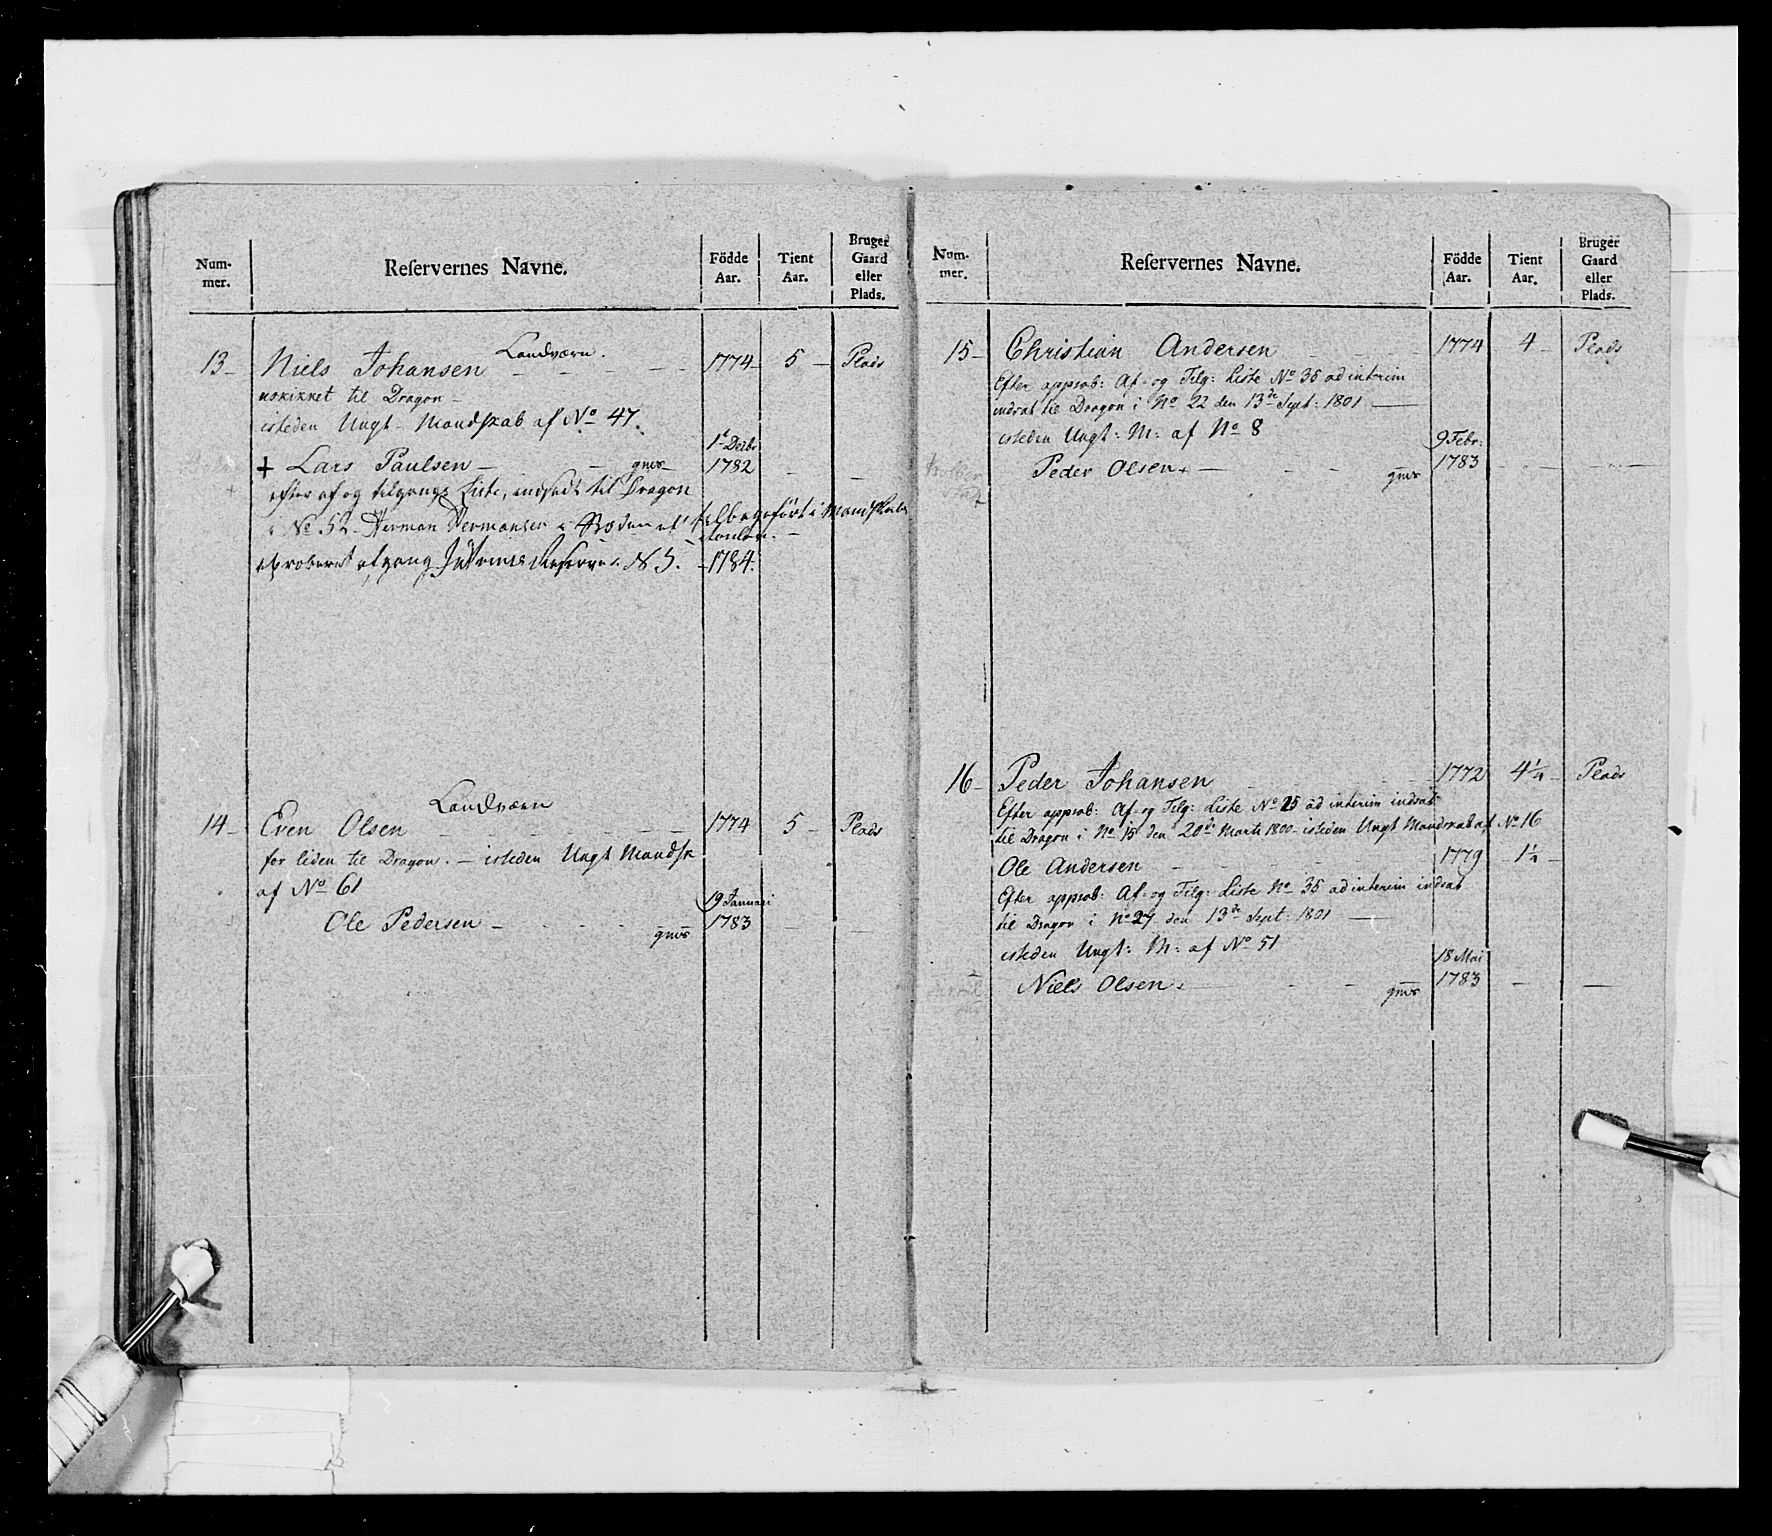 Num-
mer.
Reservernes Navne.
Födde
Aar.
Tient
Aar.
Bruger
Gaard
eller
Plads.
Landværn.
13 Niels Johansen 1774 5 Plads
uskikket til Dragon
isteden Ungt Mandskab af No 47.
1t Decbr
+ Lars Paulsen gnvs 1782
efter af og tilgangs Liste, indsadt til Dragon
i No 52 Herman Hermansen tilbageført i Mandskabs
afgang Reserve N 5. 1784.
Landværn
14 Even Olsen 1774 5 Plads
for liden til Dragon. isteden Ungt Mandsk
af No 61
19 Januari
Ole Pedersen gnvs 1783
Num-
mer.
Reservernes Navne.
Födde
Aar.
Tient
Aar.
Bruger
Gaard
eller
Plads.
15 Christian Andersen 1774 4 Plads
Efter approb: Af- og Tilg: Liste No 36 ad interim
indsat til Dragon i No 22 den 13de Sept: 1801
isteden Ungt: M: af No 8
9 Febr:
Peder Olsen gnvs 1783
16 Peder Johansen 1772 4 1/4 Plads
Efter approb: Af- og Tilg: Liste No 25 ad interim indsat
til Dragon i No 15 den 20de Marti 1800 isteden Ungt Mandskab af No 16
Ole Andersen 1779 1 1/4
Efter approb: Af- og Tilg: Liste No 36 ad interim indsat
til Dragon i No 24 den 13de Sept: 1801
isteden Ungt: M: af No 51
18 Mai
Niels Olsen gnvs 1783